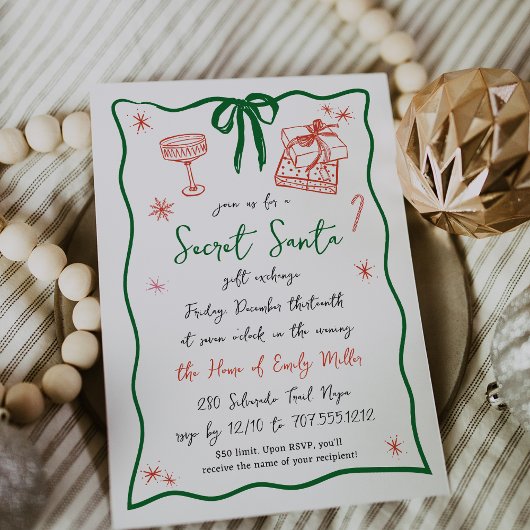 join us for a
Secret Santa
gift exchange
Friday, December thirteenth
at seven o'clock in the evening
the Home of Emily Miller
280 Silverado Trail. Napa
rsvp by 12/10 to 707.555.1212.
$50 limit. Upon RSVP, you'll
receive the name of your recipient!